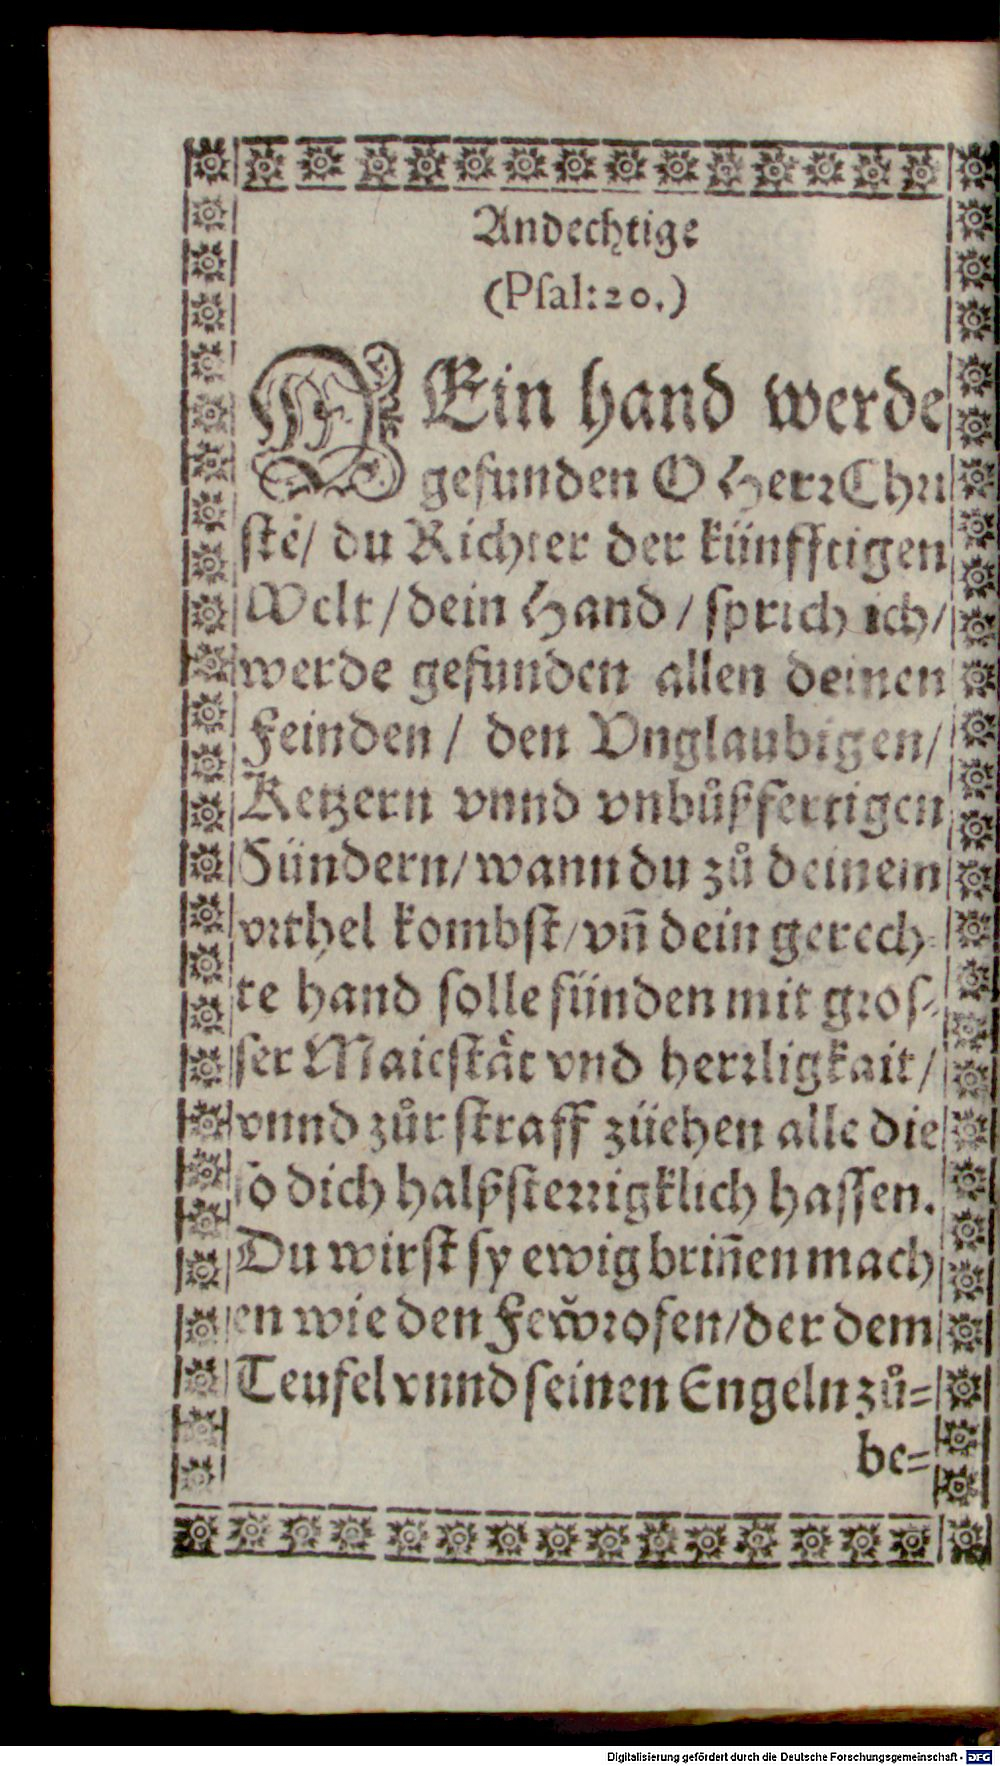 Andechtige
(Psal: 20.)
DEin hand werde
gefunden O Herr Chri
stė/ du Richter der künfftigen
Welt / dein Hand / sprich ich /
werde gefunden allen deinen
Feinden / den Vnglaubigen /
Ketzern vnnd vnbůßfertigen
Sündern / wann du zů deinem
vrthel kombst / vñ dein gerech=
te hand solle fünden mit gros=
ser Maieståt vnd herrligkait /
vnnd zůr straff züehen alle die
so dich halßsterrigklich hassen.
Du wirst sy ewig briñen mach
en wie den Few̆rofen / der dem
Teufel vnnd seinen Engeln zů=
be=
Digitalisierung gefördert durch die Deutsche Forschungsgemeinschaft - DFG